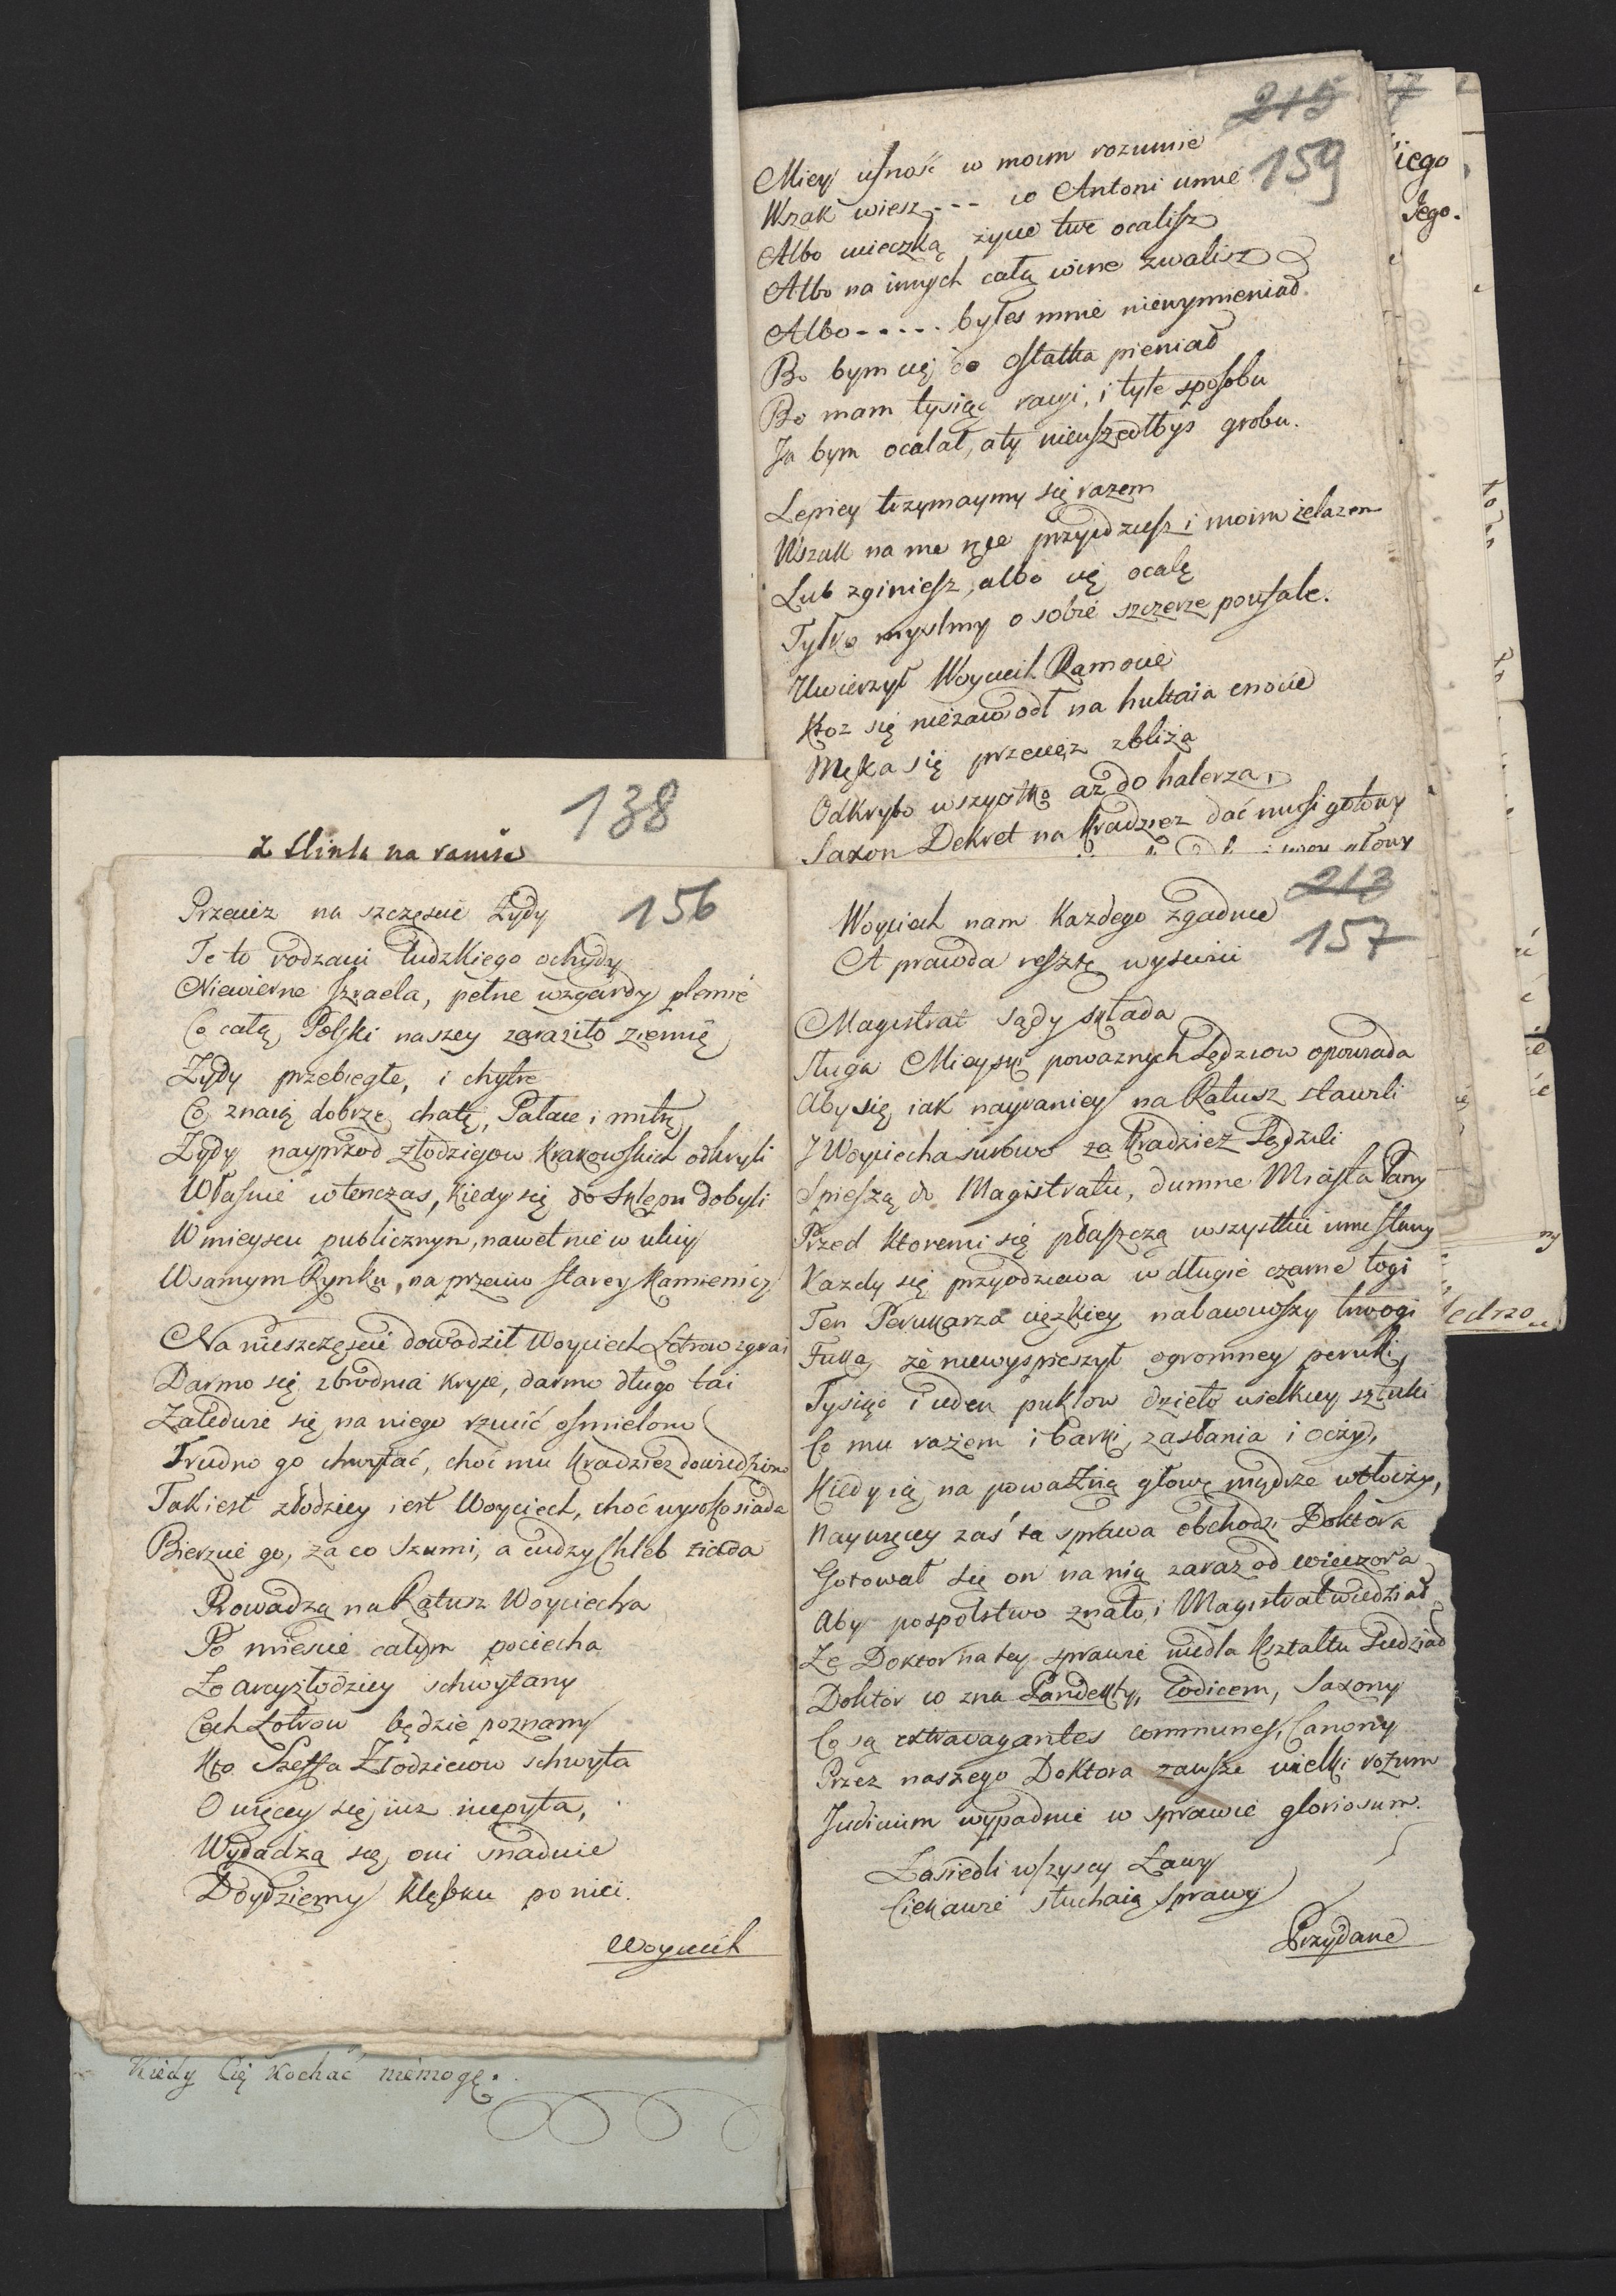 215
159
Miey ufność w moim rozumie
Wszak wiesz --- co Antoni umie
Albo ucieczką życie twe ocalisz
Albo na innych całą wine zwalisz
Albo ----- byłes mnie niewymieniał
Bo bym cię do ostatka pieniał
Bo mam tysiąc racyi, i tyle sposobu
Ja bym ocalał, a ty nieuszedłbyś grobu.
Lepiey trzymaymy się razem
Wszak na me ręce przyidziesz i moim żelazem
Lub zginiesz, albo cię ocalę
Tylko myslmy o sobie szczerze poufale.
Uwierzył Woyciech Ramocie
Ktoz się niezawiodł na hultaia cnocie
Męka się przeciez zbliża
Odkryto wszystko aż do halerza,
Saxon Dekret na Kradziez dać musi gotowy
iego
iego.
138
z Flinta na ramie
156
Przeciez na szczęscie Żydy
Te to rodzaiu ludzkiego ochydy
Niewierne Izraela, pełne wzgardy plemie
Co całą Polski naszey zaraziło ziemię
Żydy przebiegłe, i chytre
Co znaią dobrze chatę, Pałace i mitrę
Żydy nayprzod złodzieiow Krakowskich odkryli
Własnie wtenczas, kiedy się do Sklepu dobyli
W mieyscu publicznym, nawet nie w ulicy
W samym Rynku, na przeciw starey Kamienicy
Na nieszczęscie dowodził Woyciech Łotrow zgrai
Darmo się zbrodnia kryie, darmo długo tai
Zaledwie się na niego rzucić osmielono
Trudno go chwytać, choć mu Kradziez dowiedziono
Tak iest złodziey iest Woyciech, choć wysoko siada
Bierzcie go, za co Szumi, a cudzy Chleb ziada
Prowadzą na Ratusz Woyciecha
Po miescie całym pociecha
Ze arcyzłodziey schwytany
Cech Łotrow będzie poznany
Kto Szeffa Złodzieiow schwyta
O więcey się iuz niepyta,
Wydadzą się oni snadnie
Doydziemy kłębku po nici.
Woyciech
213
157
Woyciech nam Kazdego zgadnie
A prawda resztę wyscieni
Magistrat sądy składa
Sługa Mieyski powaznych Sędziow opowiada
Aby się iak nayraniey na Ratusz stawili
I Woyciecha surowo za Kradziez Sędzili
Spieszą do Magistratu, dumne Miasta Pany
Przed ktoremi się płaszczą wszystkie inne stany
Kazdy się przyodziewa w długie czarne togi
Ten Perukarza cięzkiey nabawiwszy trwogi
Fuka, że niewyspieszył ogromney peruki
Tysiąc i ieden puklow dzieło wielkiey sztuki
Co mu razem i barki, zasłania i oczy,
Kiedy ią na powazną głowę mądrze wtłoczy,
Naywięcey zaś ta sprawa obchodzi Doktora
Gotował się on na nią zaraz od wieczora
Aby pospolstwo znało, i Magistrat wiedział
Ze Doktor na tey sprawie niedla Kształtu Siedział
Doktor co zna Pandekty, Codicem, Saxony
Co są extravagantes communes, Canony
Przez naszego Doktora zawsze wielki rozum
Judicium wypadnie w sprawie gloriosum.
Zasiedli wszyscy Ławy
Ciekawie słuchaią sprawy
Przydane
Kiedy Cię Kochać niemogę.